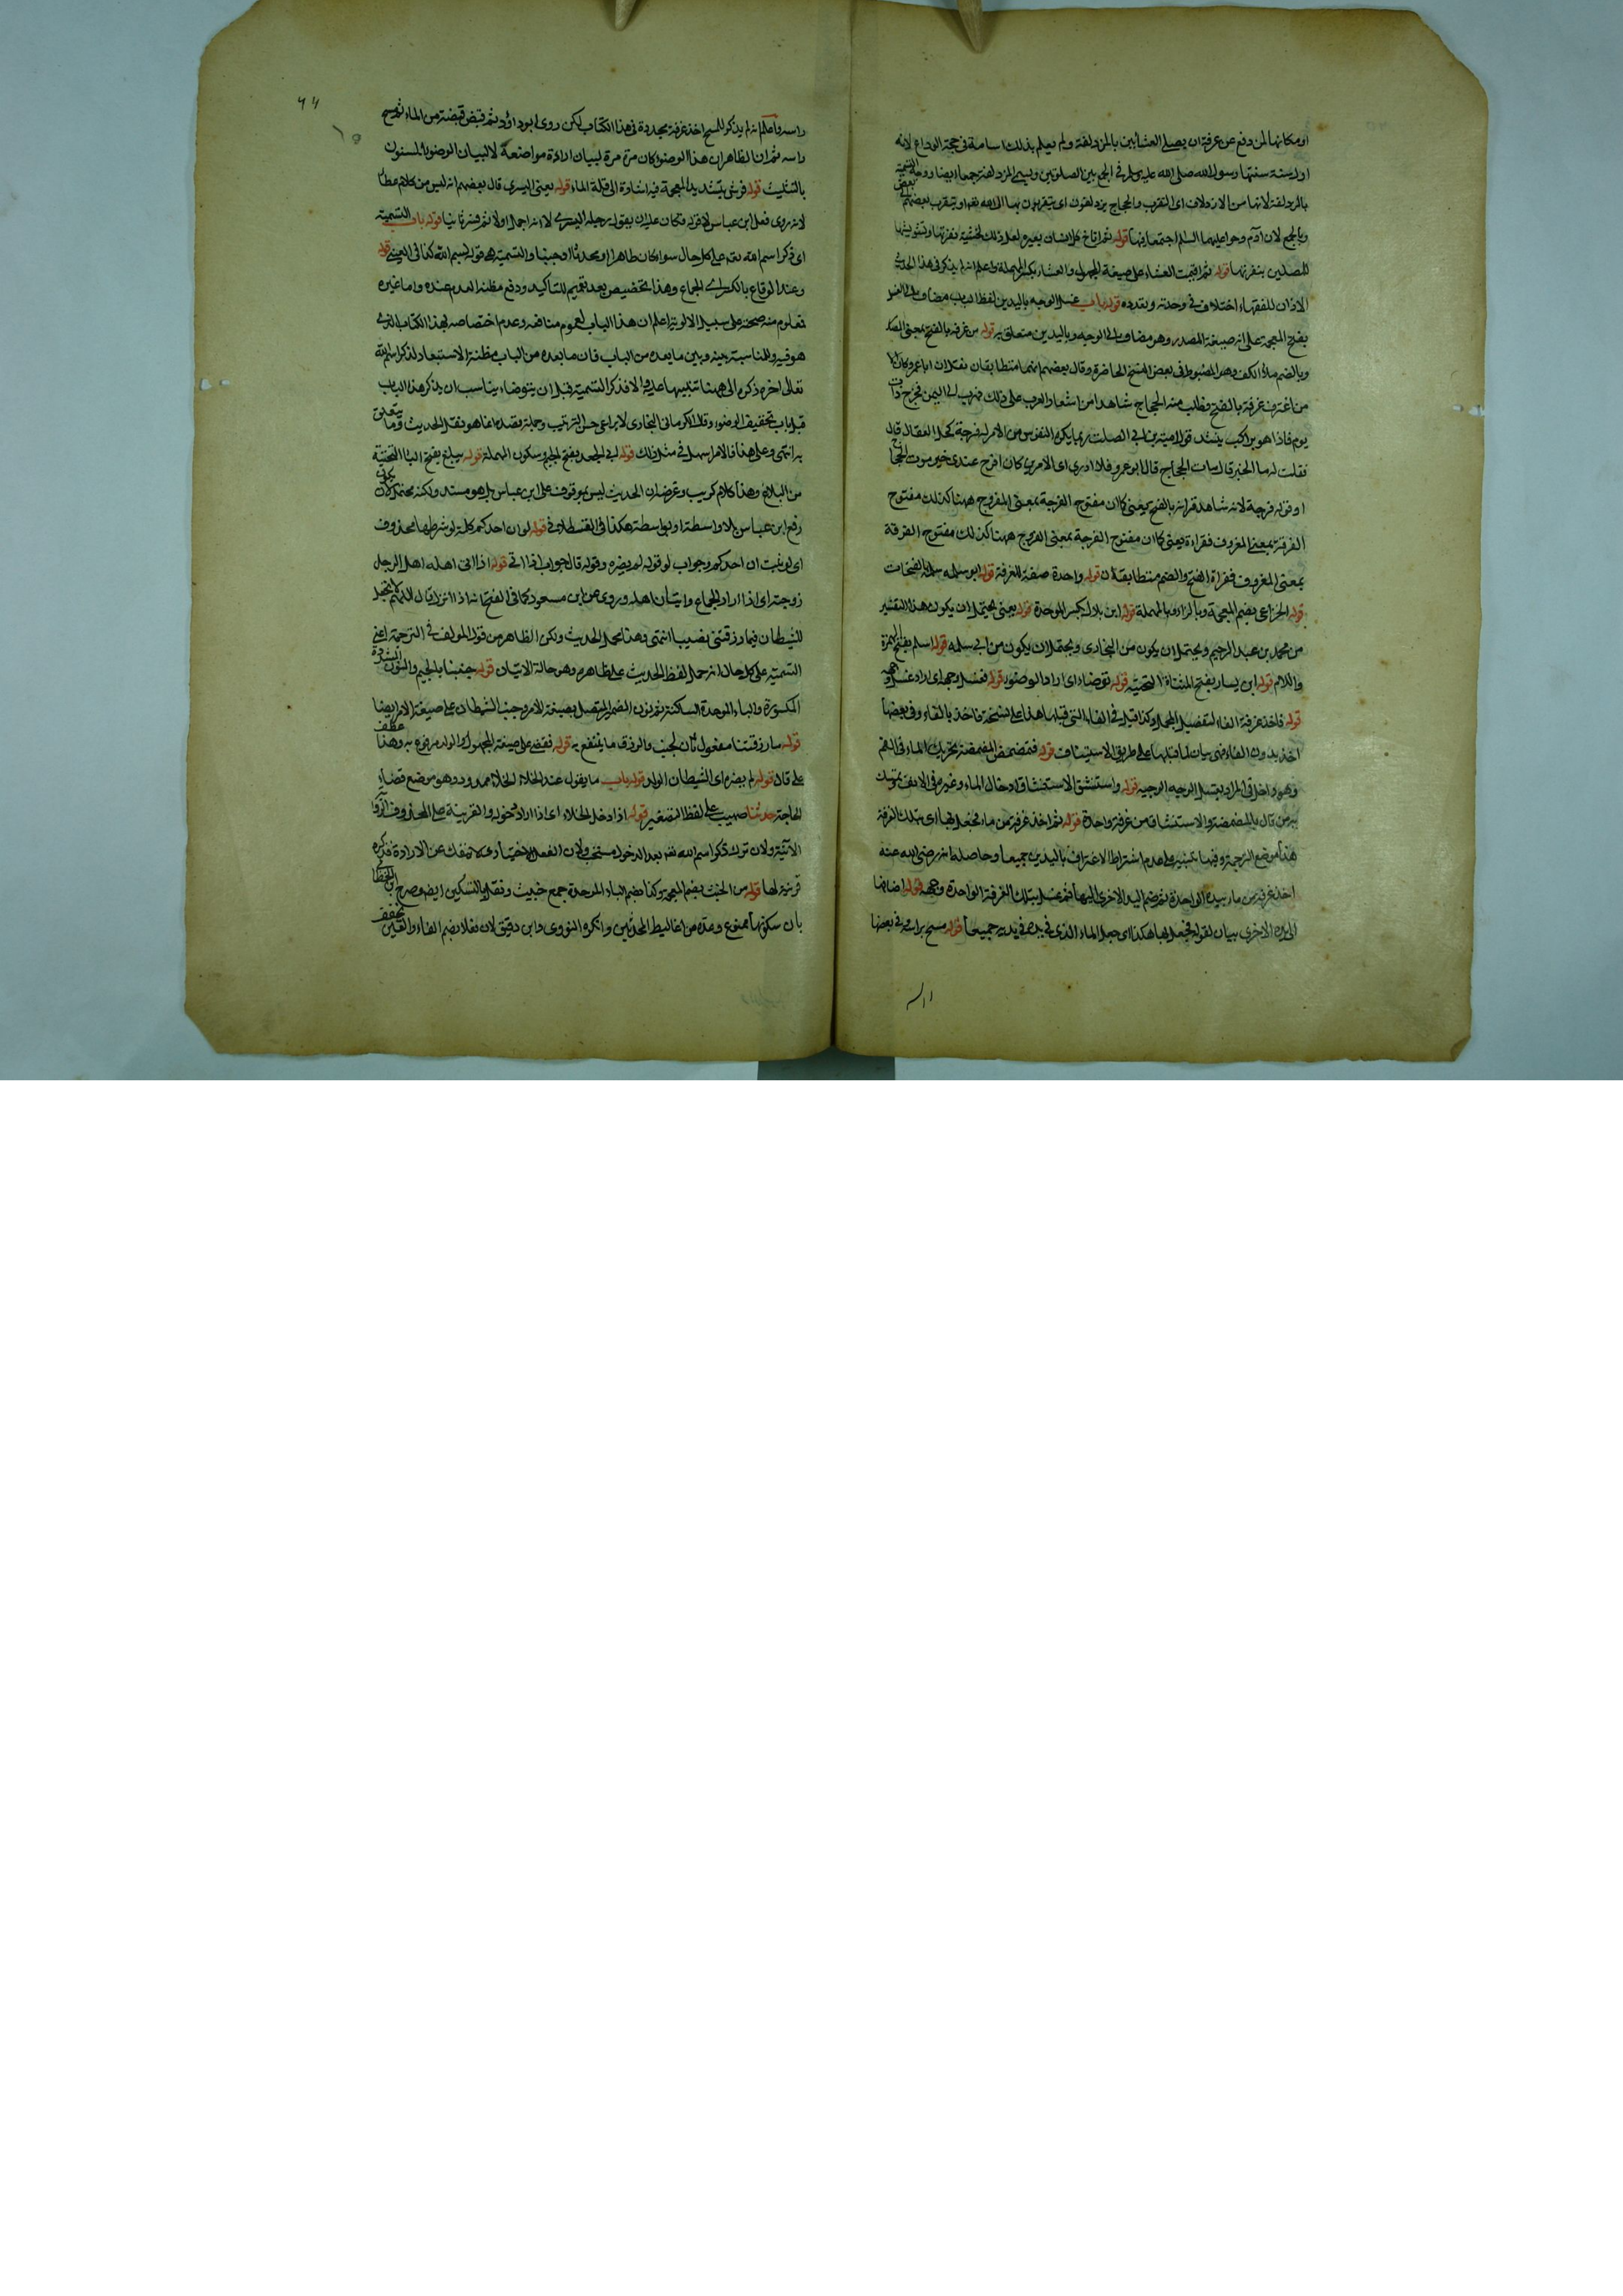 او مكانها لمن دفع عن عرفة ان يصلي العشائين بالمزدلفة ولم يعلم بذلك اسامة في حجة الوداع لانه
اول سنة سنها رسول الله صلى الله عليه وسلم في الجمع بين الصلوتين ويسمى المزدلفة جمعا ايضا ووجه التسمية
بالمزدلفة لانها من الازدلاف اى التقرب والحجاج يزدلفون اى يتقربون بها الى الله تعه او يتقرب بعضهم الى بعض
وبالجمع لان آدم وحوا عليهما السلام اجتمعا فيها قوله ثم اناخ كل انسان بعيره لعل ذلك لخشية نفرتها وتشويشها
للمصلين بنفرتها قوله ثم اقيمت العشاء على صيغة المجهول والعشاء بكسر المهملة واعلم انه لم يذكر في هذا الحديث
الاذان للفقهاء اختلاف في وحدته وتعدده قوله باب غسل الوجه باليدين لفظ الباب مضاف الى الغسل
بفتح المعجمة على انه صيغة المصدر وهو مضاف الى الوجه وباليدين متعلق به قوله من غرفة بالفتح بمعنى المصدر
وبالضم ملؤ الكف وهو المضبوط في بعض النسخ الحاضرة وقال بعضهم انهما متطابقان نقلا ان ابا عمرو كان
من اغترف غرفة بالفتح فطلب منه الحجاج شاهدا من اشعار العرب على ذلك فهرب الى اليمن فخرج ذات
يوم فاذا هو براكب ينشد قول امية بن ابي الصلت ربما يكره النفوس من الامر له فرجة كحل العقال قال
فقلت له ما الخبر قال مات الحجاج قال ابو عمرو فلا ادرى اى الامرين كان افرح عندى خبر موت الحجاج
او قوله فرجة لانه شاهد قراءته بالفتح يعنى كما ان مفتوح الفرجة بمعنى المفروج ههنا كذلك مفتوح
الغرفة بمعنى المغروف فقراءة يعنى كما ان مفتوح الفرجة بمعنى الفروج ههنا كذلك مفتوح الغرفة
بمعنى المغروف فقراءة الفتح والضم متطابقان قوله واحدة صفة للغرفة قوله ابو سلمه سلمه بالفتحات
قوله الخزاعى بضم المعجمة وبالزاء المهملة قوله ابن بلال بكسر الموحدة قوله يعنى يحتمل ان يكون هذا التفسير
من محمد بن عبد الرحيم ويحتمل ان يكون من البخارى ويحتمل ان يكون من ابي سلمه قوله اسلم بفتح الهمزة
واللام قوله ابن يسار بفتح المثناة التحتية قوله توضاء اى اراد الوضوء قوله فغسل وجهه اى اراد غسل وجهه
قوله فاخذ غرفة الفاء لتفصيل المجمل وكذا قيل في الفاء التي قبلها هذا على نسخة فاخذ بالفاء وفى بعضها
اخذ بدون الفاء فهو بيان لما قبلها على طريق الاستيناف قوله فتمضمض المضمضة تحريك الماء في الفم
وهو داخل في المراد بغسل الوجه قوله واستنشق الاستنشاق ادخال الماء وغيره في الانف وتمسك
به من قال بالمضمضة والاستنشاق من غرفة واحدة قوله ثم اخذ غرفة من ماء فجعل بها اى بتلك الغرفة
هذا موضع الترجمة وفيها تنبيه على عدم اشتراط الاغتراف باليدين جميعا وحاصله انه رضى الله عنه
اخذ غرفة من ماء بيده الواحدة ثم ضم اليد الاخرى اليها ثم غسل بتلك الغرفة الواحدة وجهه قوله اضافها
الى يده الاخرى بيان لقوله فجعل بها هكذا اى جعل الماء الذى في يده في يديه جميعا قوله مسح براسه وفى بعضها
راسه واعلم انه لم يذكر للمسح اخذ غرفة مجددة في هذا الكتاب لكن روى ابو داؤد ثم قبض قبضة من الماء ثم مسح
راسه ثم ان الظاهر ان هذا الوضوء كان مرة مرة لبيان ارادة مواضعه لا لبيان الوضوء المسنون
بالتثليث قوله فرش بتشديد المعجمة فيه اشارة الى قلة الماء قوله يعنى اليسرى قال بعضهم انه ليس من كلام عطاء
لانه روى فعل ابن عباس لا قوله فكان عليه ان يقول رجله اليسرى الا انه اجمل اولا ثم فسر ثانيا قوله باب التسمية
اى ذكر اسم الله تعه على كل حال سواء كان طاهرا او محدثا او جنبا والتسمية هو قول بسم الله كذا في العينى قوله
وعند الوقاع بالكسر اى الجماع وهذا تخصيص بعد تعميم للتاكيد ودفع مظنة العدم عنده واما غيره
فعلوم منه صحته على سبيل الالوية اعلم ان هذا الباب لعموم منافعه وعدم اختصاصه بهذا الكتاب الذى
هو فيه والمناسبة بينه وبين ما بعده من الباب فان ما بعده من الباب مظنة الاستبعاد لذكر اسم الله
تعالى اخر ذكره الى ههنا تنبيها عليه والا فذكر التسمية قبل ان يتوضاء يناسب ان يذكر هذا الباب
قبل باب تخفيف الوضوء وقال الكرمانى البخارى لا يراعى حسن الترتيب وجملة قصده انما هو نقل الحديث وما يتعلق
به انتهى وعلى هذا فالامر سهل في مثل ذلك قوله ابي الجعد بفتح الجيم وسكون المهملة قوله يبلغ بفتح الياء التحتية
من البلاغ وهذا كلام كريب وغرضه ان الحديث ليس بموقوف على ابن عباس بل هو مسند ولكنه يحتمل ان يكون
رفع ابن عباس بلا واسطة او بواسطة هكذا في القسطلانى قوله لو ان احدكم كلمة لو شرطها محذوف
اى لو ثبت ان احدكم وجواب لو قوله لم يضره وقوله قال جواب اذا اتى قوله اذا اتى اهله اهل الرجل
زوجته اى اذا اراد الجماع واتيان اهله وروى عن ابن مسعود كما في الفتح انه اذا انزل قال اللهم لا تجعل
للشيطان فيما رزقتنى نصيبا انتهى وهذا محمل الحديث ولكن الظاهر من قول المولف في الترجمة اعنى
التسمية على كل حال انه حمل لفظ الحديث على ظاهره وهو حالة الاتيان قوله جنبنا بالجيم والنون المشددة
المكسورة والباء الموحدة الساكنة ثم نون الضمير المتصل بصيغة الامر وجنب الشيطان على صيغة الامر ايضا
قوله ما رزقتنا مفعول ثان لجنب والرزق ما ينتفع به قوله فقضى على صيغة المجهول والولد مرفوع به وهذا عطف
على قال قوله لم يضره اى الشيطان الولد قوله باب ما يقول عند الخلاء الخلاء ممدود وهو موضع قضاء
الحاجة حدثنا صهيب على لفظ التصغير قوله اذا دخل الخلاء اى اذا اراد دخوله والقرينة على المحذوف
الآتية ولان ترك ذكر اسم الله تعه بعد الدخول مستحب ولان الفعل الاختيارى لا ينفك عن الارادة فذكره
قرينة لها قوله من الخبث بضم المعجمة وكذا بضم الباء الموحدة جمع خبيث ونقل بالتسكين ايضا وصرح الخطابى
بان سكونها ممنوع وعده من اغاليط المحدثين وانكره النووى وابن دقيق لان فعلا بضم الفاء والعين يخفف